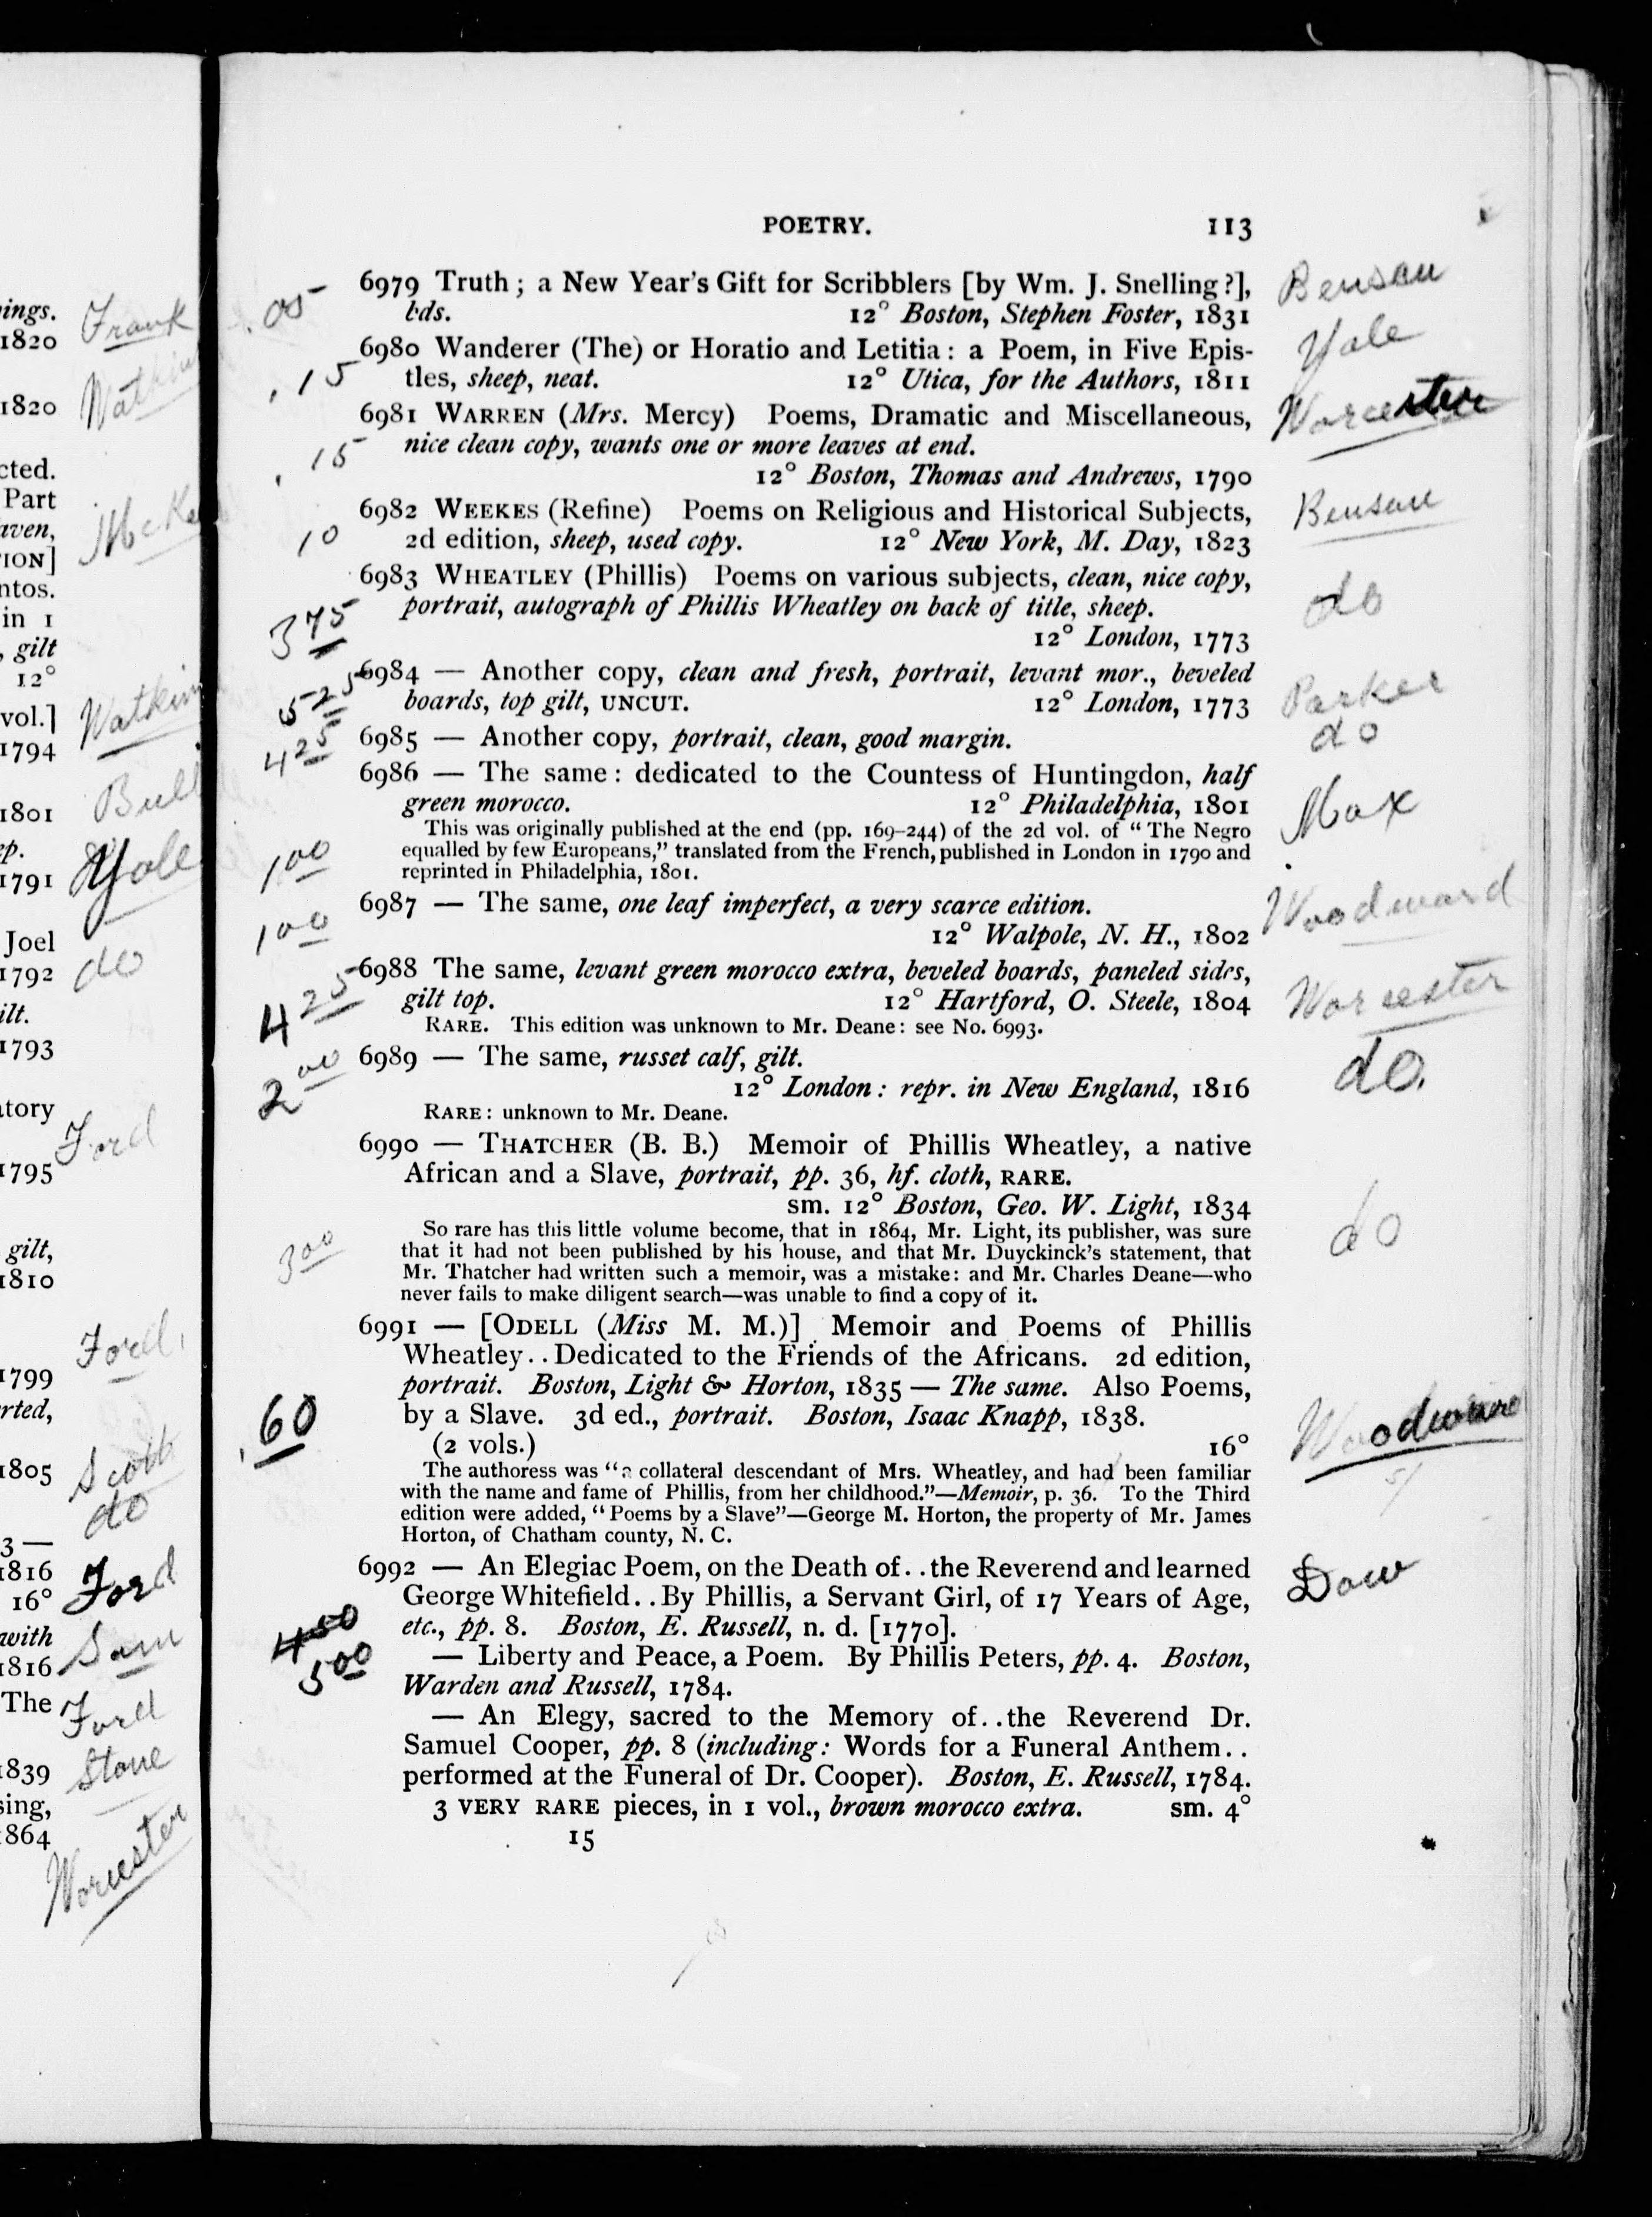 ings.
1820
1820
cted.
Part
aven,
ION]
ntos.
in 1
, gilt
12°
vol.]
1794
1801
ep.
1791
Joel
1792
ilt.
1793
atory
1795
gilt,
1810
1799
rted,
1805
3 —
1816
16°
with
1816
The
1839
sing,
1864
Frank
Watkins
McKe
Watkins
Bull
Yale
do
Ford
Ford
Scott
do
Ford
Sam
Ford
Stone
Worcester
POETRY. 113
.05 6979 Truth; a New Year's Gift for Scribblers [by Wm. J. Snelling?], Benson
bds. 12° Boston, Stephen Foster, 1831
.15 6980 Wanderer (The) or Horatio and Letitia: a Poem, in Five Epis- Yale
tles, sheep, neat. 12° Utica, for the Authors, 1811
.15 6981 WARREN (Mrs. Mercy) Poems, Dramatic and Miscellaneous, Worcester
nice clean copy, wants one or more leaves at end.
12° Boston, Thomas and Andrews, 1790
10 6982 WEEKES (Refine) Poems on Religious and Historical Subjects, Benson
2d edition, sheep, used copy. 12° New York, M. Day, 1823
3 75 6983 WHEATLEY (Phillis) Poems on various subjects, clean, nice copy, do
portrait, autograph of Phillis Wheatley on back of title, sheep.
12° London, 1773
5 25 6984 — Another copy, clean and fresh, portrait, levant mor., beveled Parker
boards, top gilt, UNCUT. 12° London, 1773
4 25 6985 — Another copy, portrait, clean, good margin. do
6986 — The same: dedicated to the Countess of Huntingdon, half Max
green morocco. 12° Philadelphia, 1801
This was originally published at the end (pp. 169-244) of the 2d vol. of "The Negro
1 00 equalled by few Europeans," translated from the French, published in London in 1790 and
reprinted in Philadelphia, 1801.
1 00 6987 — The same, one leaf imperfect, a very scarce edition. Woodward
12° Walpole, N. H., 1802
4 25 6988 The same, levant green morocco extra, beveled boards, paneled sides, Worcester
gilt top. 12° Hartford, O. Steele, 1804
RARE. This edition was unknown to Mr. Deane: see No. 6993.
2 00 6989 — The same, russet calf, gilt. do.
12° London: repr. in New England, 1816
RARE: unknown to Mr. Deane.
6990 — THATCHER (B. B.) Memoir of Phillis Wheatley, a native
African and a Slave, portrait, pp. 36, hf. cloth, RARE.
sm. 12° Boston, Geo. W. Light, 1834
3 00 So rare has this little volume become, that in 1864, Mr. Light, its publisher, was sure do
that it had not been published by his house, and that Mr. Duyckinck's statement, that
Mr. Thatcher had written such a memoir, was a mistake: and Mr. Charles Deane—who
never fails to make diligent search—was unable to find a copy of it.
6991 — [ODELL (Miss M. M.)] Memoir and Poems of Phillis
Wheatley..Dedicated to the Friends of the Africans. 2d edition,
portrait. Boston, Light & Horton, 1835 — The same. Also Poems,
.60 by a Slave. 3d ed., portrait. Boston, Isaac Knapp, 1838. Woodward
(2 vols.) 16°
The authoress was "a collateral descendant of Mrs. Wheatley, and had been familiar
with the name and fame of Phillis, from her childhood."—Memoir, p. 36. To the Third
edition were added, "Poems by a Slave"—George M. Horton, the property of Mr. James
Horton, of Chatham county, N. C.
6992 — An Elegiac Poem, on the Death of..the Reverend and learned Dow
George Whitefield..By Phillis, a Servant Girl, of 17 Years of Age,
4 50 etc., pp. 8. Boston, E. Russell, n. d. [1770].
5 00 — Liberty and Peace, a Poem. By Phillis Peters, pp. 4. Boston,
Warden and Russell, 1784.
— An Elegy, sacred to the Memory of..the Reverend Dr.
Samuel Cooper, pp. 8 (including: Words for a Funeral Anthem..
performed at the Funeral of Dr. Cooper). Boston, E. Russell, 1784.
3 VERY RARE pieces, in 1 vol., brown morocco extra. sm. 4°
15